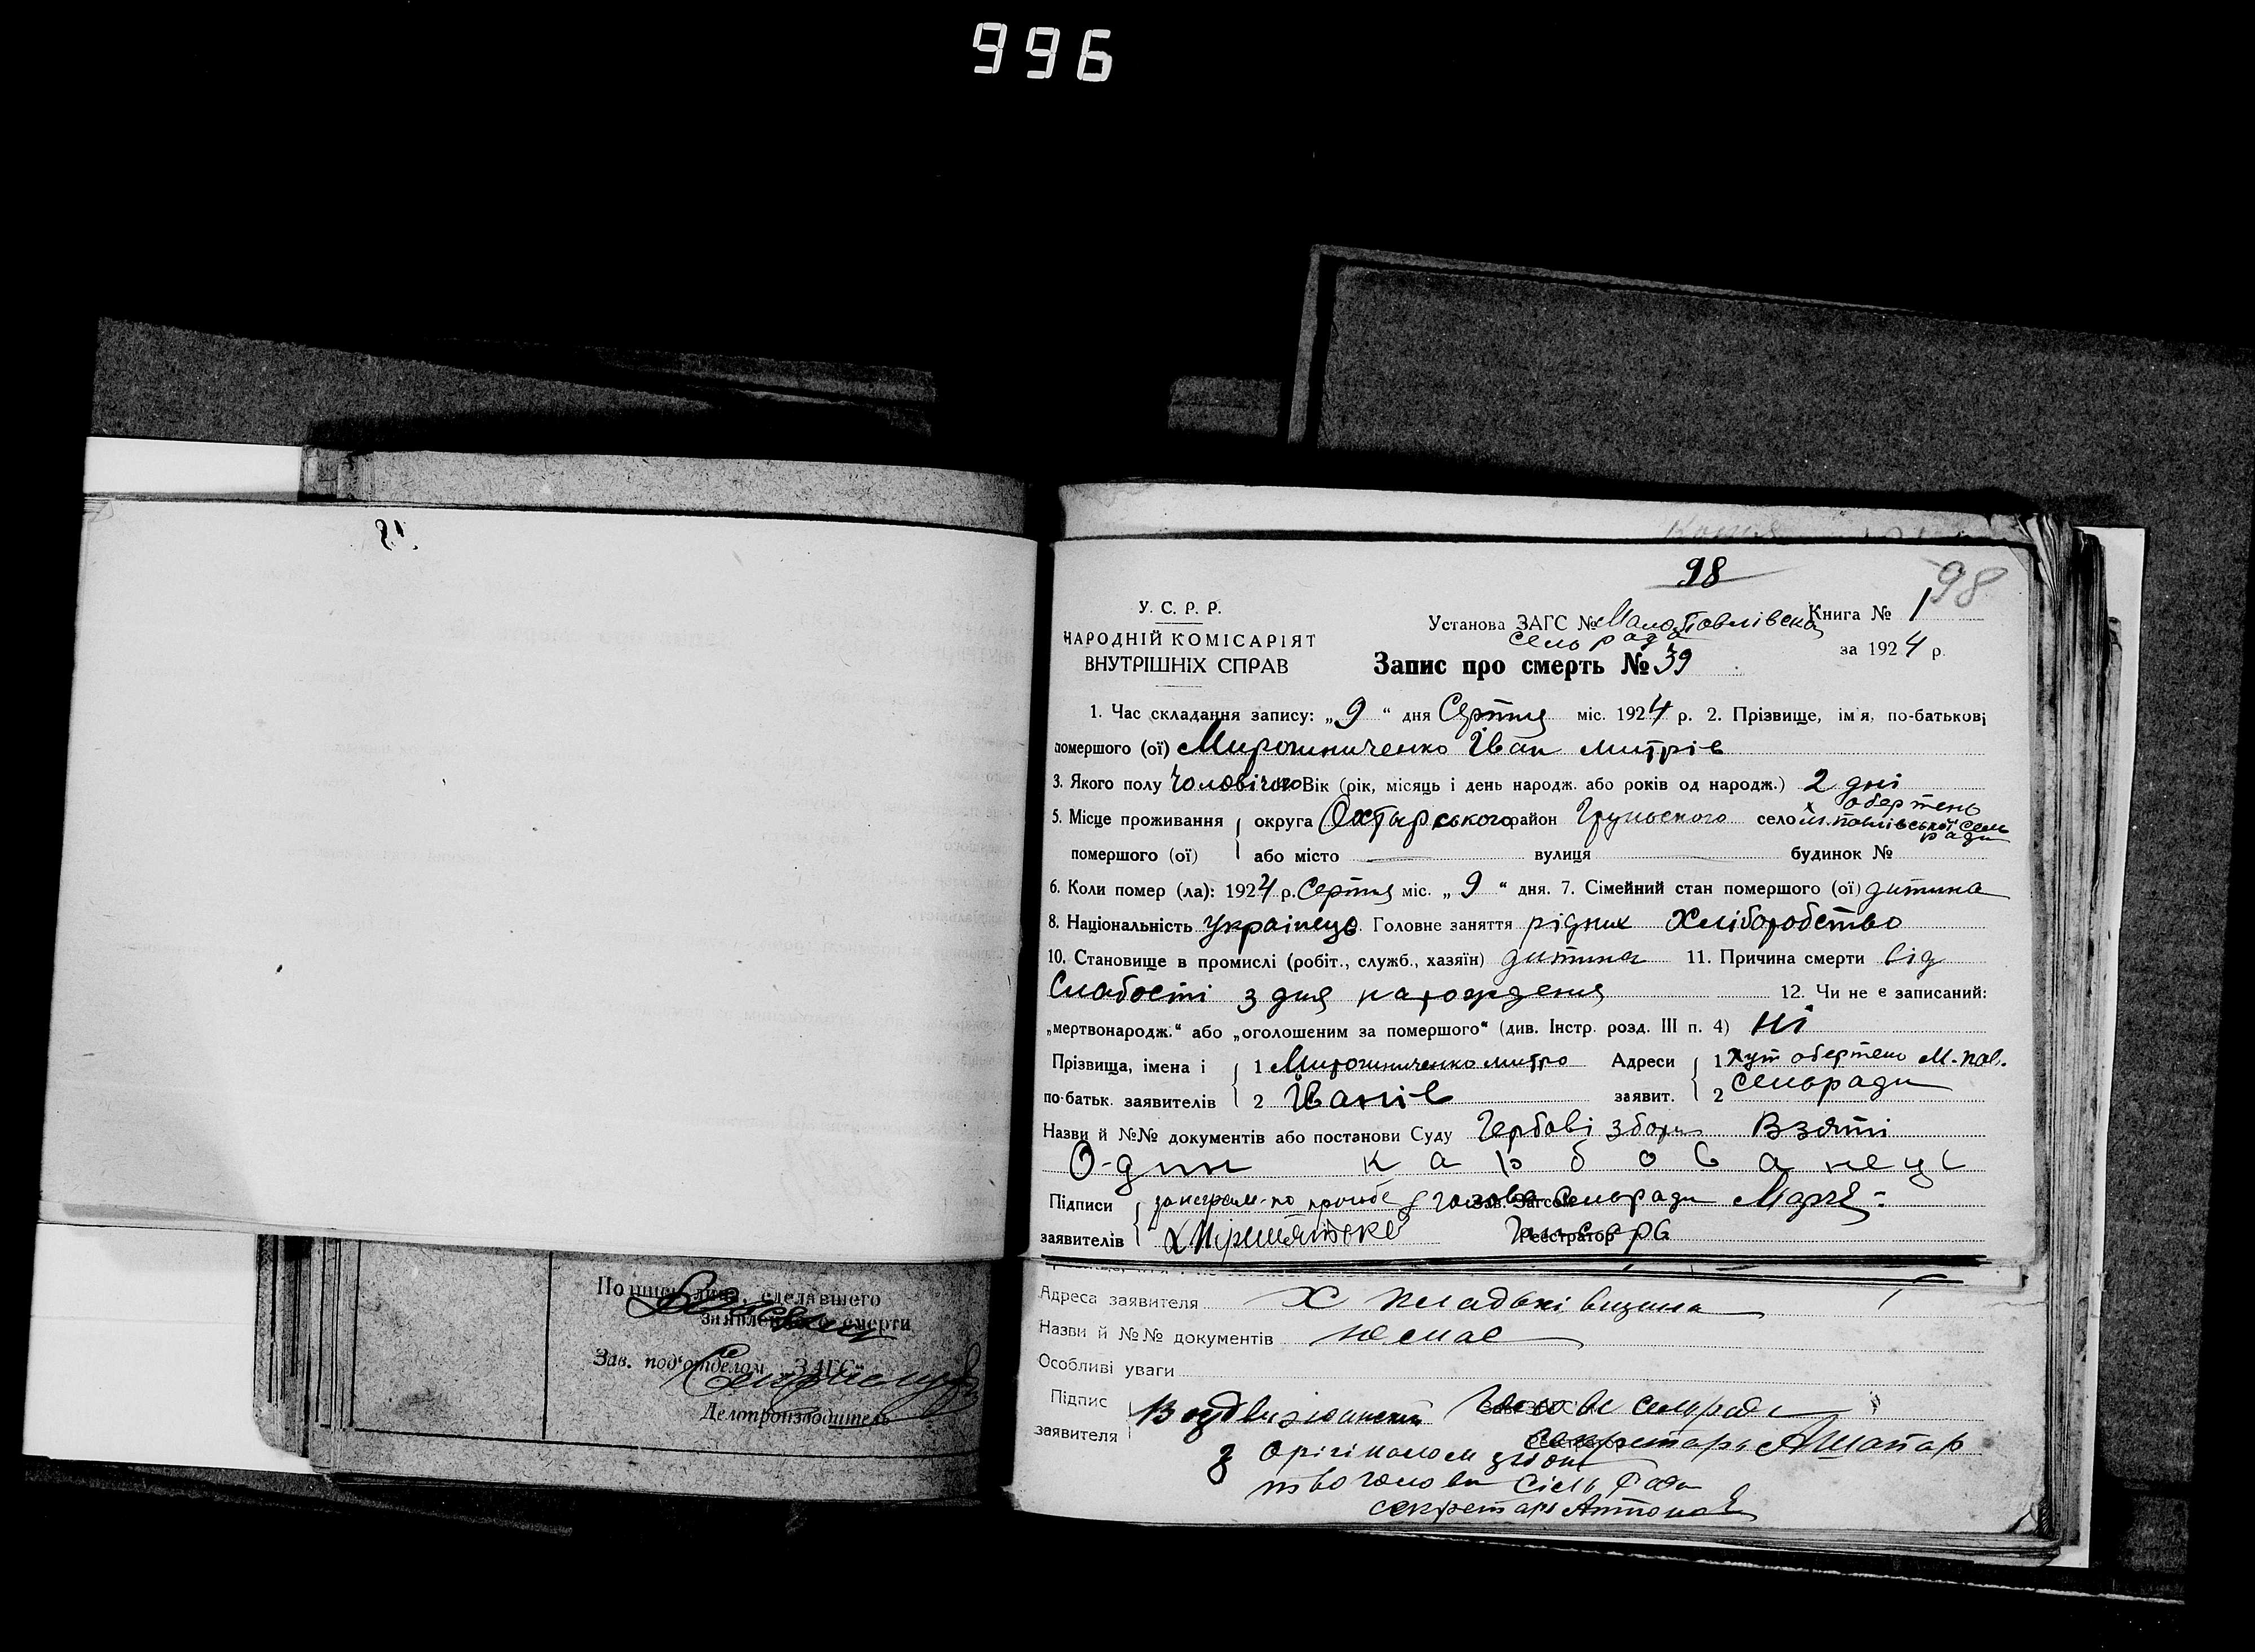 996
98
98
У. С. Р. Р.
НАРОДНІЙ КОМІСАРІЯТ
ВНУТРІШНІХ СПРАВ
Установа ЗАГС № Мало Павлівска Книга № 1
сель рада
за 1924 р.
Запис про смерть № 39
1. Час складання запису: „9" дня Серпня міс. 1924 р. 2. Прізвище, ім'я, по-батькові
помершого (ої) Мирошниченко Іван митрів
3. Якого полу Чоловічого Вік (рік, місяць і день народж. або років од народж.) 2 дні
5. Місце проживання округа Охтырського район Груньского село х. обертень
м. павлівської сель
ради
помершого (ої) або місто вулиця будинок №
6. Коли помер (ла): 1924 р. Серпня міс. „9" дня. 7. Сімейний стан помершого (ої) дитина
8. Національність українець. Головне заняття рідних Хліборобство
10. Становище в промислі (робіт., служб., хазяїн) дитина 11. Причина смерти від
Слабості з дня народження 12. Чи не є записаний:
„мертвонародж." або „оголошеним за помершого" (див. Інстр. розд. III п. 4) Ні
Прізвища, імена і 1 Мирошниченко митро Адреси 1 Хут обертень М-пав.
по-батьк. заявителів 2 Іванів заявит. 2 сельради
Назви й №№ документів або постанови Суду Гербові збори Взяті
О-дин карбованець
Підписи неграм. по прозьбе голова Зав. Загсом сельради
заявителів Реєстратор
Подпись лица, сделавшего
заявление о смерти
Зав. под'отделом ЗАГС
Делопроизводитель
Адреса заявителя Х
Назви й №№ документів немає
Особливі уваги
Підпис Воздвиженський Голова сельради
заявителя Секретарь АШапар
З орігіналом згідно
голови Сіль Ради
секретарь